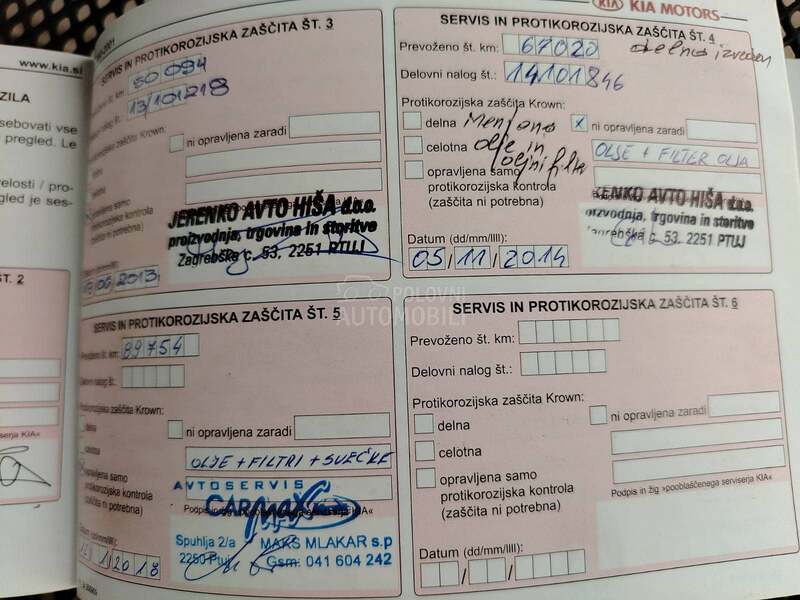 KIA MOTORS
www.kia.si
ZILA
sebovati vse
pregled. Le
elosti / pro-
gled je ses-
ŠT. 2
serja KIA«
SERVIS IN PROTIKOROZIJSKA ZAŠČITA ŠT. 3
št. km: 50 094
nalog št.: 13/101218
zaščita Krown:
ni opravljena zaradi
opravljena samo
kontrola
(zaščita ni potrebna)
JERENKO AVTO HIŠA d.o.o.
proizvodnja, trgovina in storitve
Zagrebška c. 53, 2251 PTUJ
06 2013
SERVIS IN PROTIKOROZIJSKA ZAŠČITA ŠT. 4
Prevoženo št. km: 67020 delno izveden
Delovni nalog št.: 14101846
Protikorozijska zaščita Krown:
delna Menjano x ni opravljena zaradi
celotna olje in OLJE + FILTER OLJA
opravljena samo oljni filter
protikorozijska kontrola
(zaščita ni potrebna)
JERENKO AVTO HIŠA d.o.o.
proizvodnja, trgovina in storitve
Zagrebška c. 53, 2251 PTUJ
Datum (dd/mm/llll):
05/11/2014
POLOVNI
AUTOMOBILI
SERVIS IN PROTIKOROZIJSKA ZAŠČITA ŠT. 5
Prevoženo št. km: 89754
Delovni nalog št.:
Protikorozijska zaščita Krown:
delna ni opravljena zaradi
celotna OLJE + FILTRI + SVEČKE
opravljena samo
protikorozijska kontrola
(zaščita ni potrebna)
AVTOSERVIS
CAR maxs
Spuhlja 2/a MAKS MLAKAR s.p
2250 Ptuj Gsm: 041 604 242
Datum (dd/mm/llll):
2018
SERVIS IN PROTIKOROZIJSKA ZAŠČITA ŠT. 6
Prevoženo št. km:
Delovni nalog št.:
Protikorozijska zaščita Krown:
delna ni opravljena zaradi
celotna
opravljena samo
protikorozijska kontrola
(zaščita ni potrebna)
Podpis in žig »pooblaščenega serviserja KIA«
Datum (dd/mm/llll):